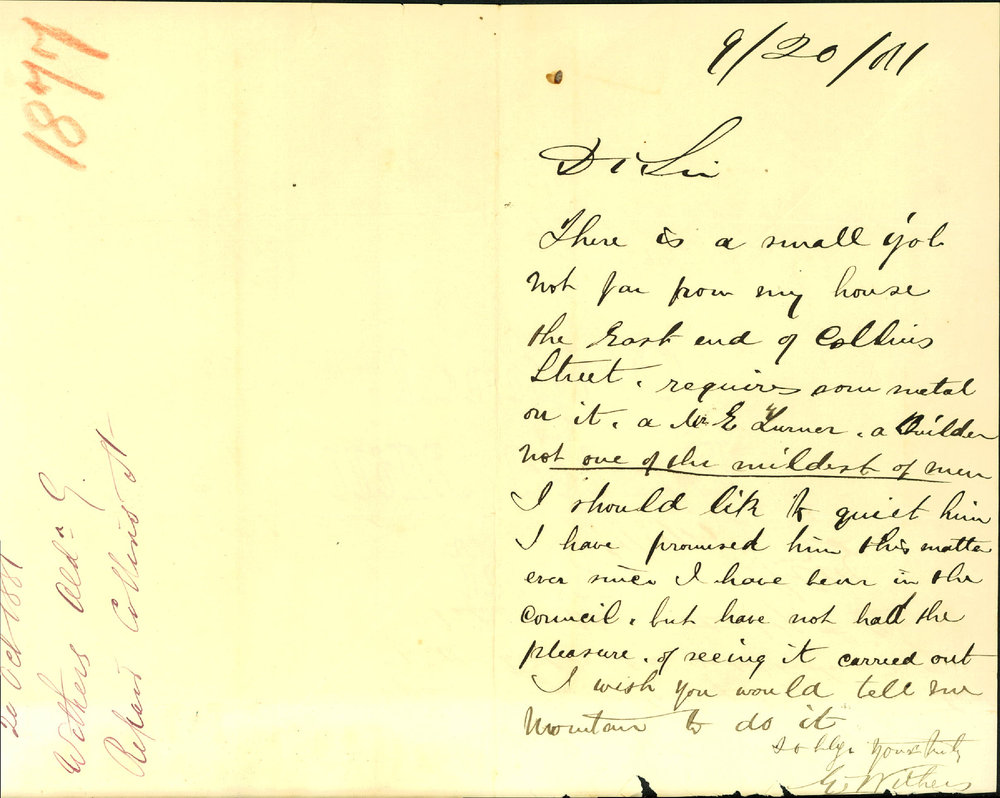 1877
20 Oct 1881
Withers Ald n G.
Repairs Collins St
9/20/81
D r Sir
There is a small job
not far from my house
the East end of Collins
Street. requires som metal
on it. a Mr E Turner. a Builder
not one of the mildest of men
I should lik to quiet him
I have promised him this matter
ever since I have been in the
council. but have not had the
pleasure. of seeing it carried out
I wish you would tell
Mountain to do it
Yours truly
G. Withers